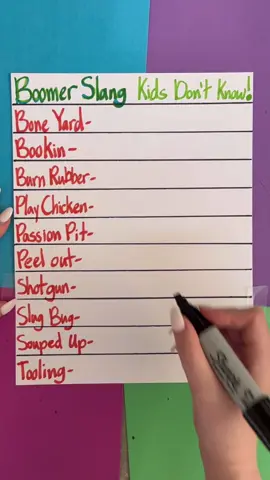 Boomer Slang Kids Don't Know!
Bone Yard-
Bookin-
Burn Rubber-
Play Chicken-
Passion Pit-
Peel out-
Shotgun-
Slug Bug-
Souped Up-
Tooling-
Sharpie